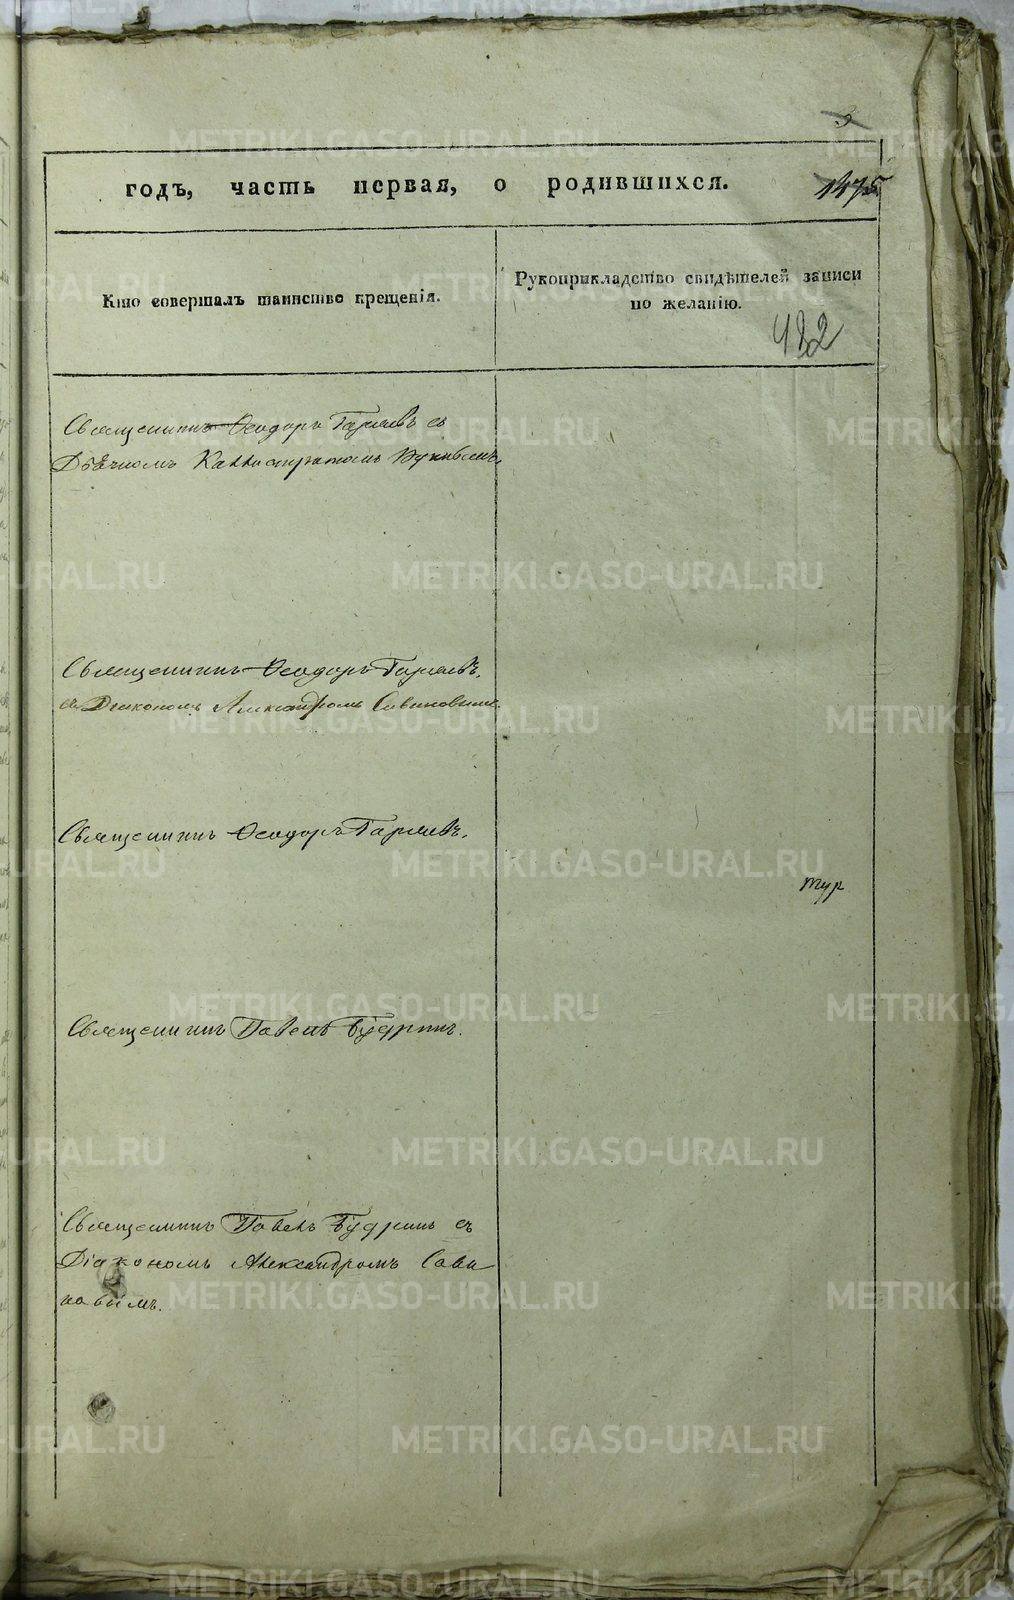 3
годъ, часть первая, о родившихся.
1475
Кто совершалъ таинство крещенія.
Рукоприкладство свидѣтелей записи
по желанію.
482
Священникъ Ѳеодоръ съ
Каллистратомъ
Священникъ Ѳеодоръ
съ Діакономъ Александромъ Савиновымъ.
Священникъ Ѳеодоръ
тур
Священникъ Павелъ Будринъ.
Священникъ Павелъ Будринъ съ
Діакономъ Александромъ Сави
новымъ.
METRIKI.GASO-URAL.RU